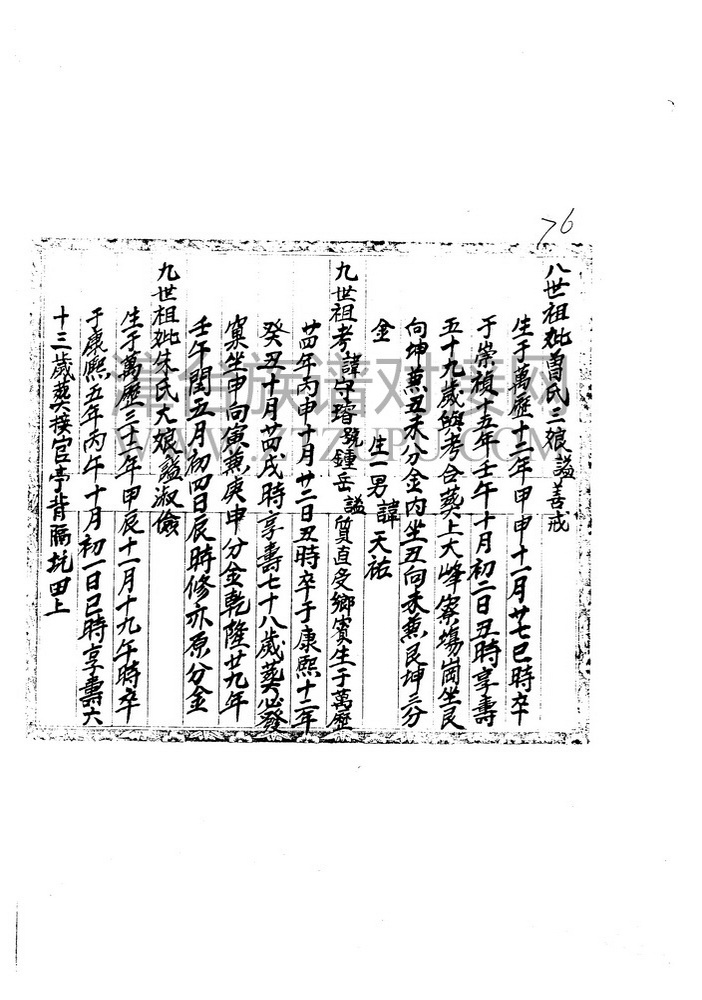 76
八世祖妣曾氏二娘謚善戒
生于萬歷十二年甲申十一月廿七巳時卒
于崇禎十五年壬午十月初二日丑時享壽
五十九歲與考合葬上大峰寮塲崗坐艮
向坤兼丑未分金内坐丑向未兼艮坤三分
金 生一男諱天祐
九世祖考諱守璿號鍾岳謚質直受鄉賓生于萬歷
廿四年丙申十月廿二日丑時卒于康熙十二年
癸丑十月廿四戌時享壽七十八歲葬心發
窠坐申向寅兼庚申分金乾隆廿九年
壬午閏五月初四日辰時修亦原分金
九世祖妣朱氏大娘謚淑儉
生于萬歷三十二年甲辰十一月十九午時卒
于康熙五年丙午十月初一日巳時享壽六
十三歲葬接官亭背隔坑田上
漳州族谱对接网
WWW.ZZZUPU.COM